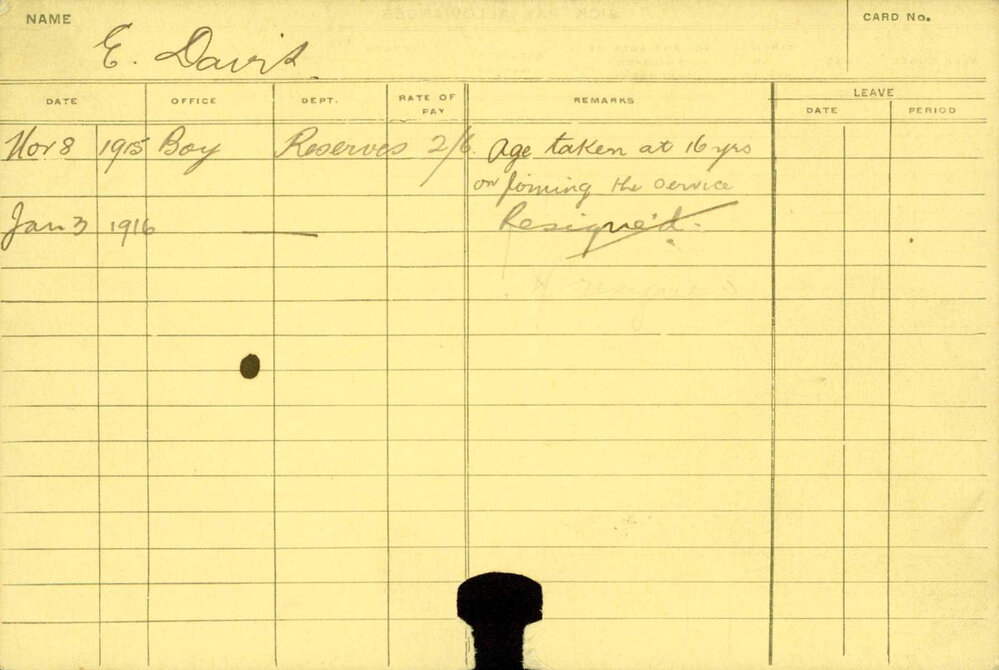 NAME
E. Davis
CARD No.
DATE OFFICE DEPT. RATE OF PAY REMARKS LEAVE
DATE PERIOD
Nov 8 1915 Boy Reserves 2/6. Age taken at 16 yrs
on joining the service
Jan 3 1916 — Resigned.